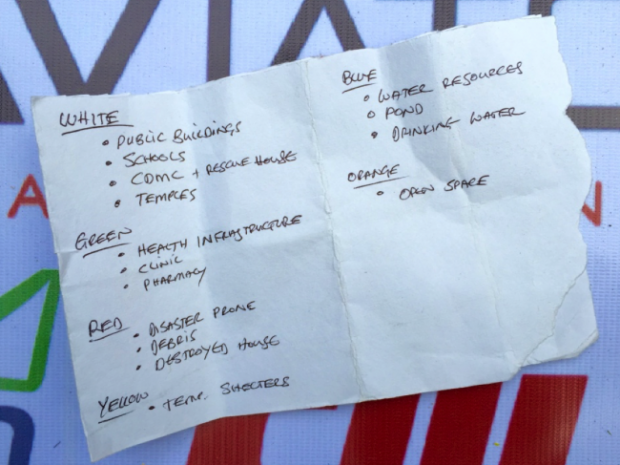 VIATE
A
N
WHITE
• PUBLIC BUILDINGS
• SCHOOLS
• CDMC + RESCUE HOUSE
• TEMPLES
GREEN
• HEALTH INFRASTRUCTURE
• CLINIC
• PHARMACY
RED
• DISASTER PRONE
• DEBRIS
• DESTROYED HOUSE
YELLOW • TEMP. SHELTERS
BLUE
• WATER RESOURCES
• POND
• DRINKING WATER
ORANGE
• OPEN SPACE